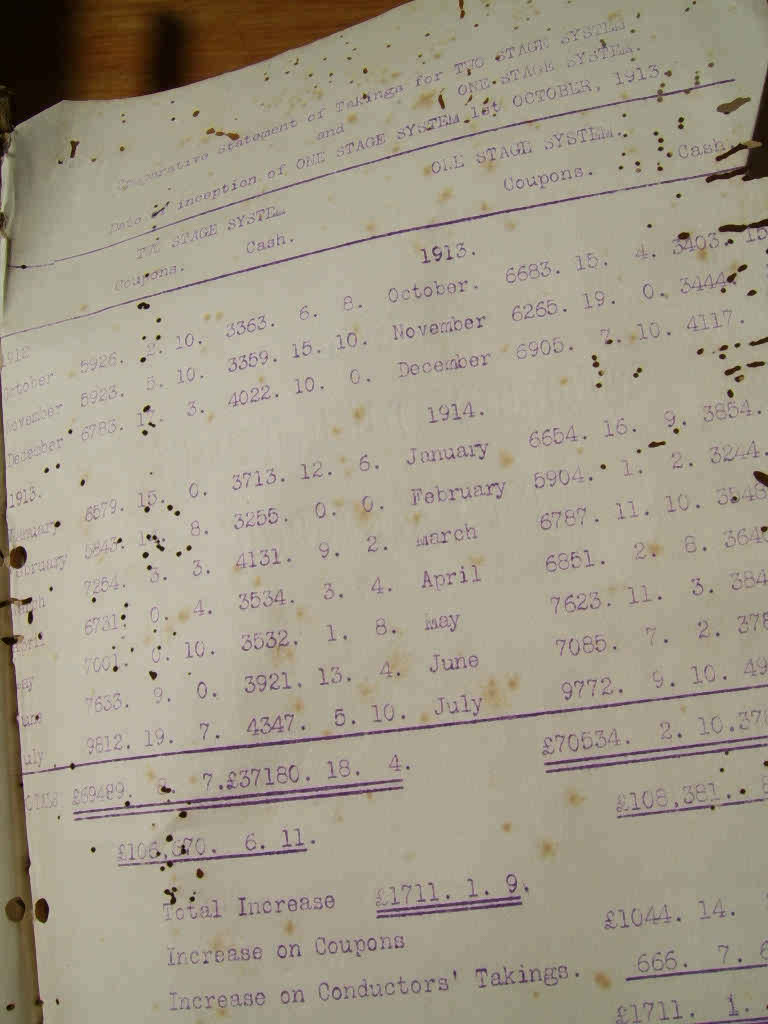 Comparative Statement of Takings for TWO STAGE SYSTEM
and ONE STAGE SYSTEM.
Date of inception of ONE STAGE SYSTEM 1st OCTOBER, 1913.
TWO STAGE SYSTEM ONE STAGE SYSTEM.
Coupons. Cash. Coupons. Cash.
1912 1913.
October 5926. 2. 10. 3363. 6. 8. October. 6683. 15. 4. 3403. 15
November 5923. 5. 10. 3359. 15. 10. November 6265. 19. 0. 3444.
December 6783. 17. 3. 4022. 10. 0. December 6905. 7. 10. 4117.
1913. 1914.
January 6579. 15. 0. 3713. 12. 6. January 6654. 16. 9. 3854.
February 5843. 8. 3255. 0. 0. February 5904. 1. 2. 3244.
March 7254. 3. 3. 4131. 9. 2. March 6787. 11. 10. 3548
April 6731. 0. 4. 3534. 3. 4. April 6851. 2. 8. 3640
May 7001. 0. 10. 3532. 1. 8. May 7623. 11. 3. 384
June 7633. 9. 0. 3921. 13. 4. June 7085. 7. 2. 378
July 9812. 19. 7. 4347. 5. 10. July 9772. 9. 10. 49
£69489. 8. 7. £37180. 18. 4. £70534. 2. 10. 378
£106,670. 6. 11. £108,381. 8
Total Increase £1711. 1. 9.
Increase on Coupons £1044. 14.
Increase on Conductors' Takings. 666. 7. 6
£1711. 1.